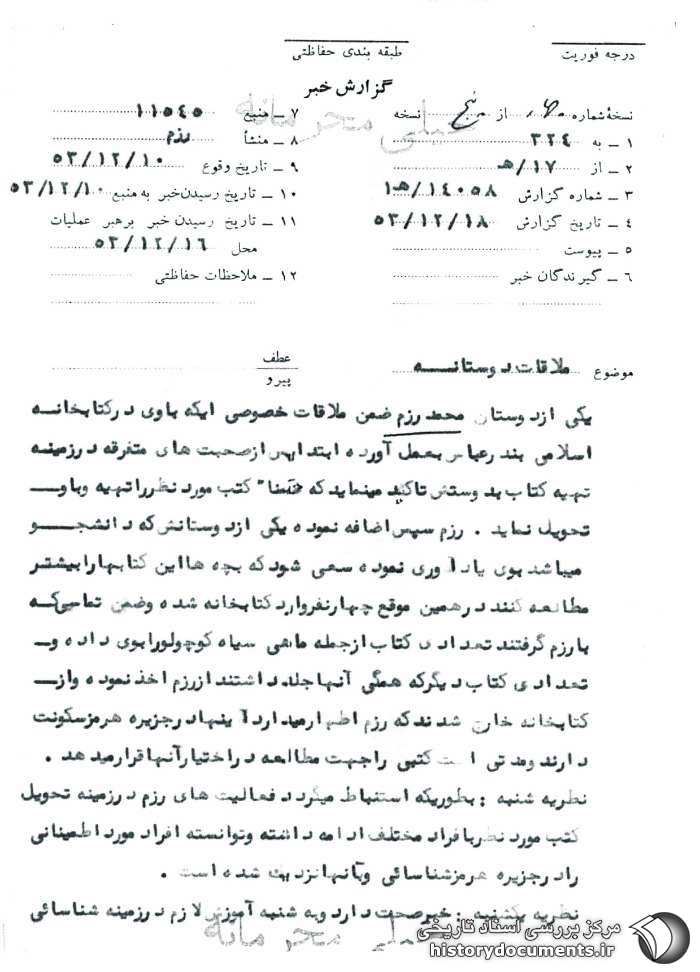 درجه فوریت
طبقه بندی حفاظتی
گزارش خبر
خیلی محرمانه
نسخهٔ شماره از پنج نسخه
۱ ــ به ۳۲۴
۲ ــ از ۱۷/هـ
۳ ــ شماره گزارش ۱۴۰۵۸/هـ۱
۴ ــ تاریخ گزارش ۵۳/۱۲/۱۸
۵ ــ پیوست
۶ ــ گیرندگان خبر
۷ ــ منبع ۱۱۵۴۵
۸ ــ منشأ رزم
۹ ــ تاریخ وقوع ۵۳/۱۲/۱۰
۱۰ ــ تاریخ رسیدن خبر به منبع ۵۳/۱۲/۱۰
۱۱ ــ تاریخ رسیدن خبر برهبر عملیات
محل ۵۳/۱۲/۱۶
۱۲ ــ ملاحظات حفاظتی
موضوع ملاقات دوستانه
عطف
پیرو
یکی از دوستان محمد رزم ضمن ملاقات خصوصی ایکه باوی در کتابخانه
اسلامی بندرعباس بعمل آورده ابتدا پس از صحبت های متفرقه در زمینه
تهیه کتاب بدوستش تاکید مینماید که حتما" کتب مورد نظر را تهیه و باو
تحویل نماید . رزم سپس اضافه نموده یکی از دوستانش که دانشجو
میباشد بوی یادآوری نموده سعی شود که بچه ها این کتابها را بیشتر
مطالعه کنند در همین موقع چهار نفر وارد کتابخانه شده و ضمن تماسی که
با رزم گرفتند تعدادی کتاب از جمله ماهی سیاه کوچولو را بوی داده و
تعدادی کتاب دیگر که همگی آنها جلد داشتند از رزم اخذ نموده و از
کتابخانه خارج شدند که رزم اظهار میدارد اینها در جزیره هرمز سکونت
دارند و مدتی است کتبی را جهت مطالعه در اختیار آنها قرار میدهد .
نظریه شنبه : بطوریکه استنباط میگردد فعالیت های رزم در زمینه تحویل
کتب مورد نظر با افراد مختلف ادامه داشته و توانسته افراد مورد اطمینانی
را در جزیره هرمز شناسائی و بآنها نزدیک شده است .
نظریه یکشنبه : خبر صحت دارد و به شنبه آموزش لازم در زمینه شناسائی
خیلی محرمانه
مرکز بررسی اسناد تاریخی
historydocuments.ir